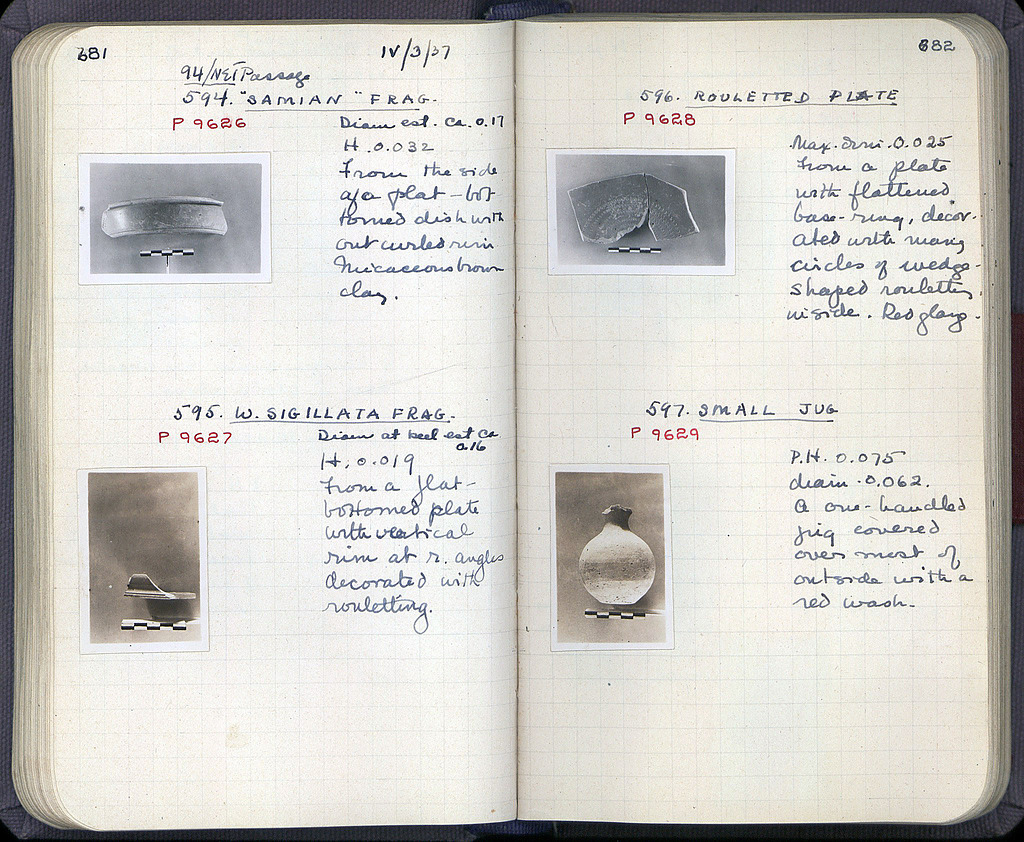 681
IV/3/37
94/NET Passage
594. "SAMIAN" FRAG.
P 9626
Diam est. ca. 0.17
H. 0.032
From the side
of a flat-bot
tomed dish with
out curled rim
Micaceous brown
clay.
595. W. SIGILLATA FRAG.
P 9627
Diam at keel est ca
0.16
H. 0.019
From a flat-
bottomed plate
with vertical
rim at r. angles
decorated with
rouletting.
682
596. ROULETTED PLATE
P 9628
Max. dim. 0.025
From a plate
with flattened
base-ring, decor-
ated with many
circles of wedge-
shaped rouletting
inside. Red glaze.
597. SMALL JUG
P 9629
P.H. 0.075
diam. 0.062.
A one-handled
jug covered
over most of
outside with a
red wash.